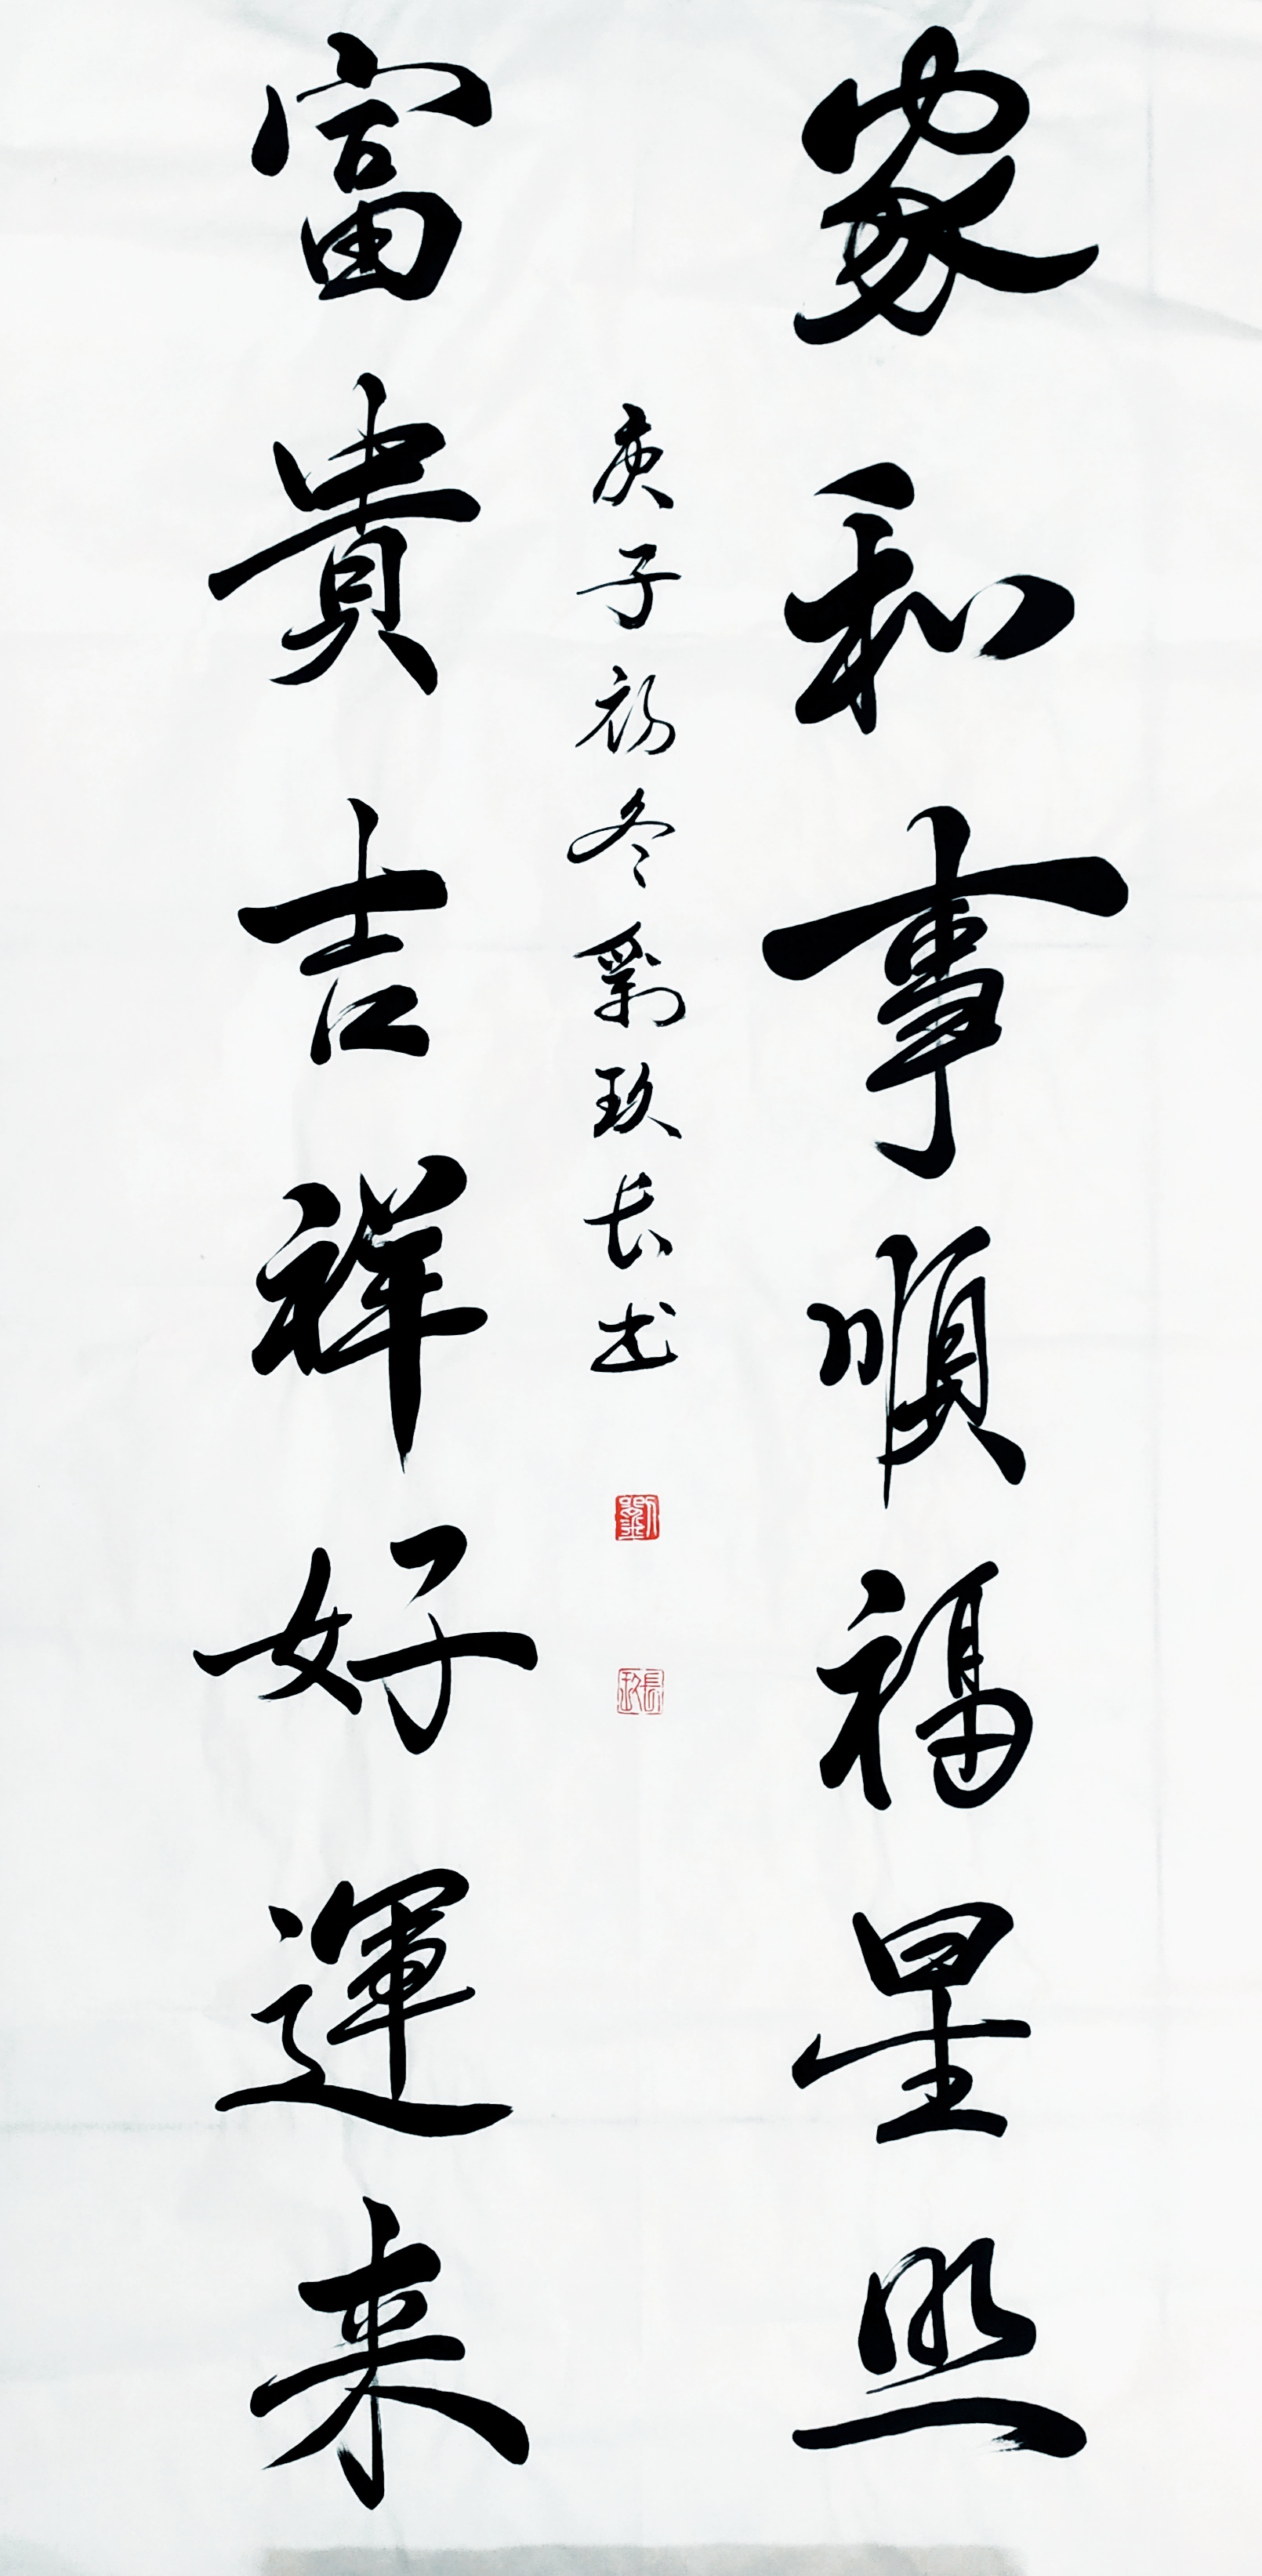 家和事順福星照
富貴吉祥好運来
庚子初冬劉玖長书
劉
長玖